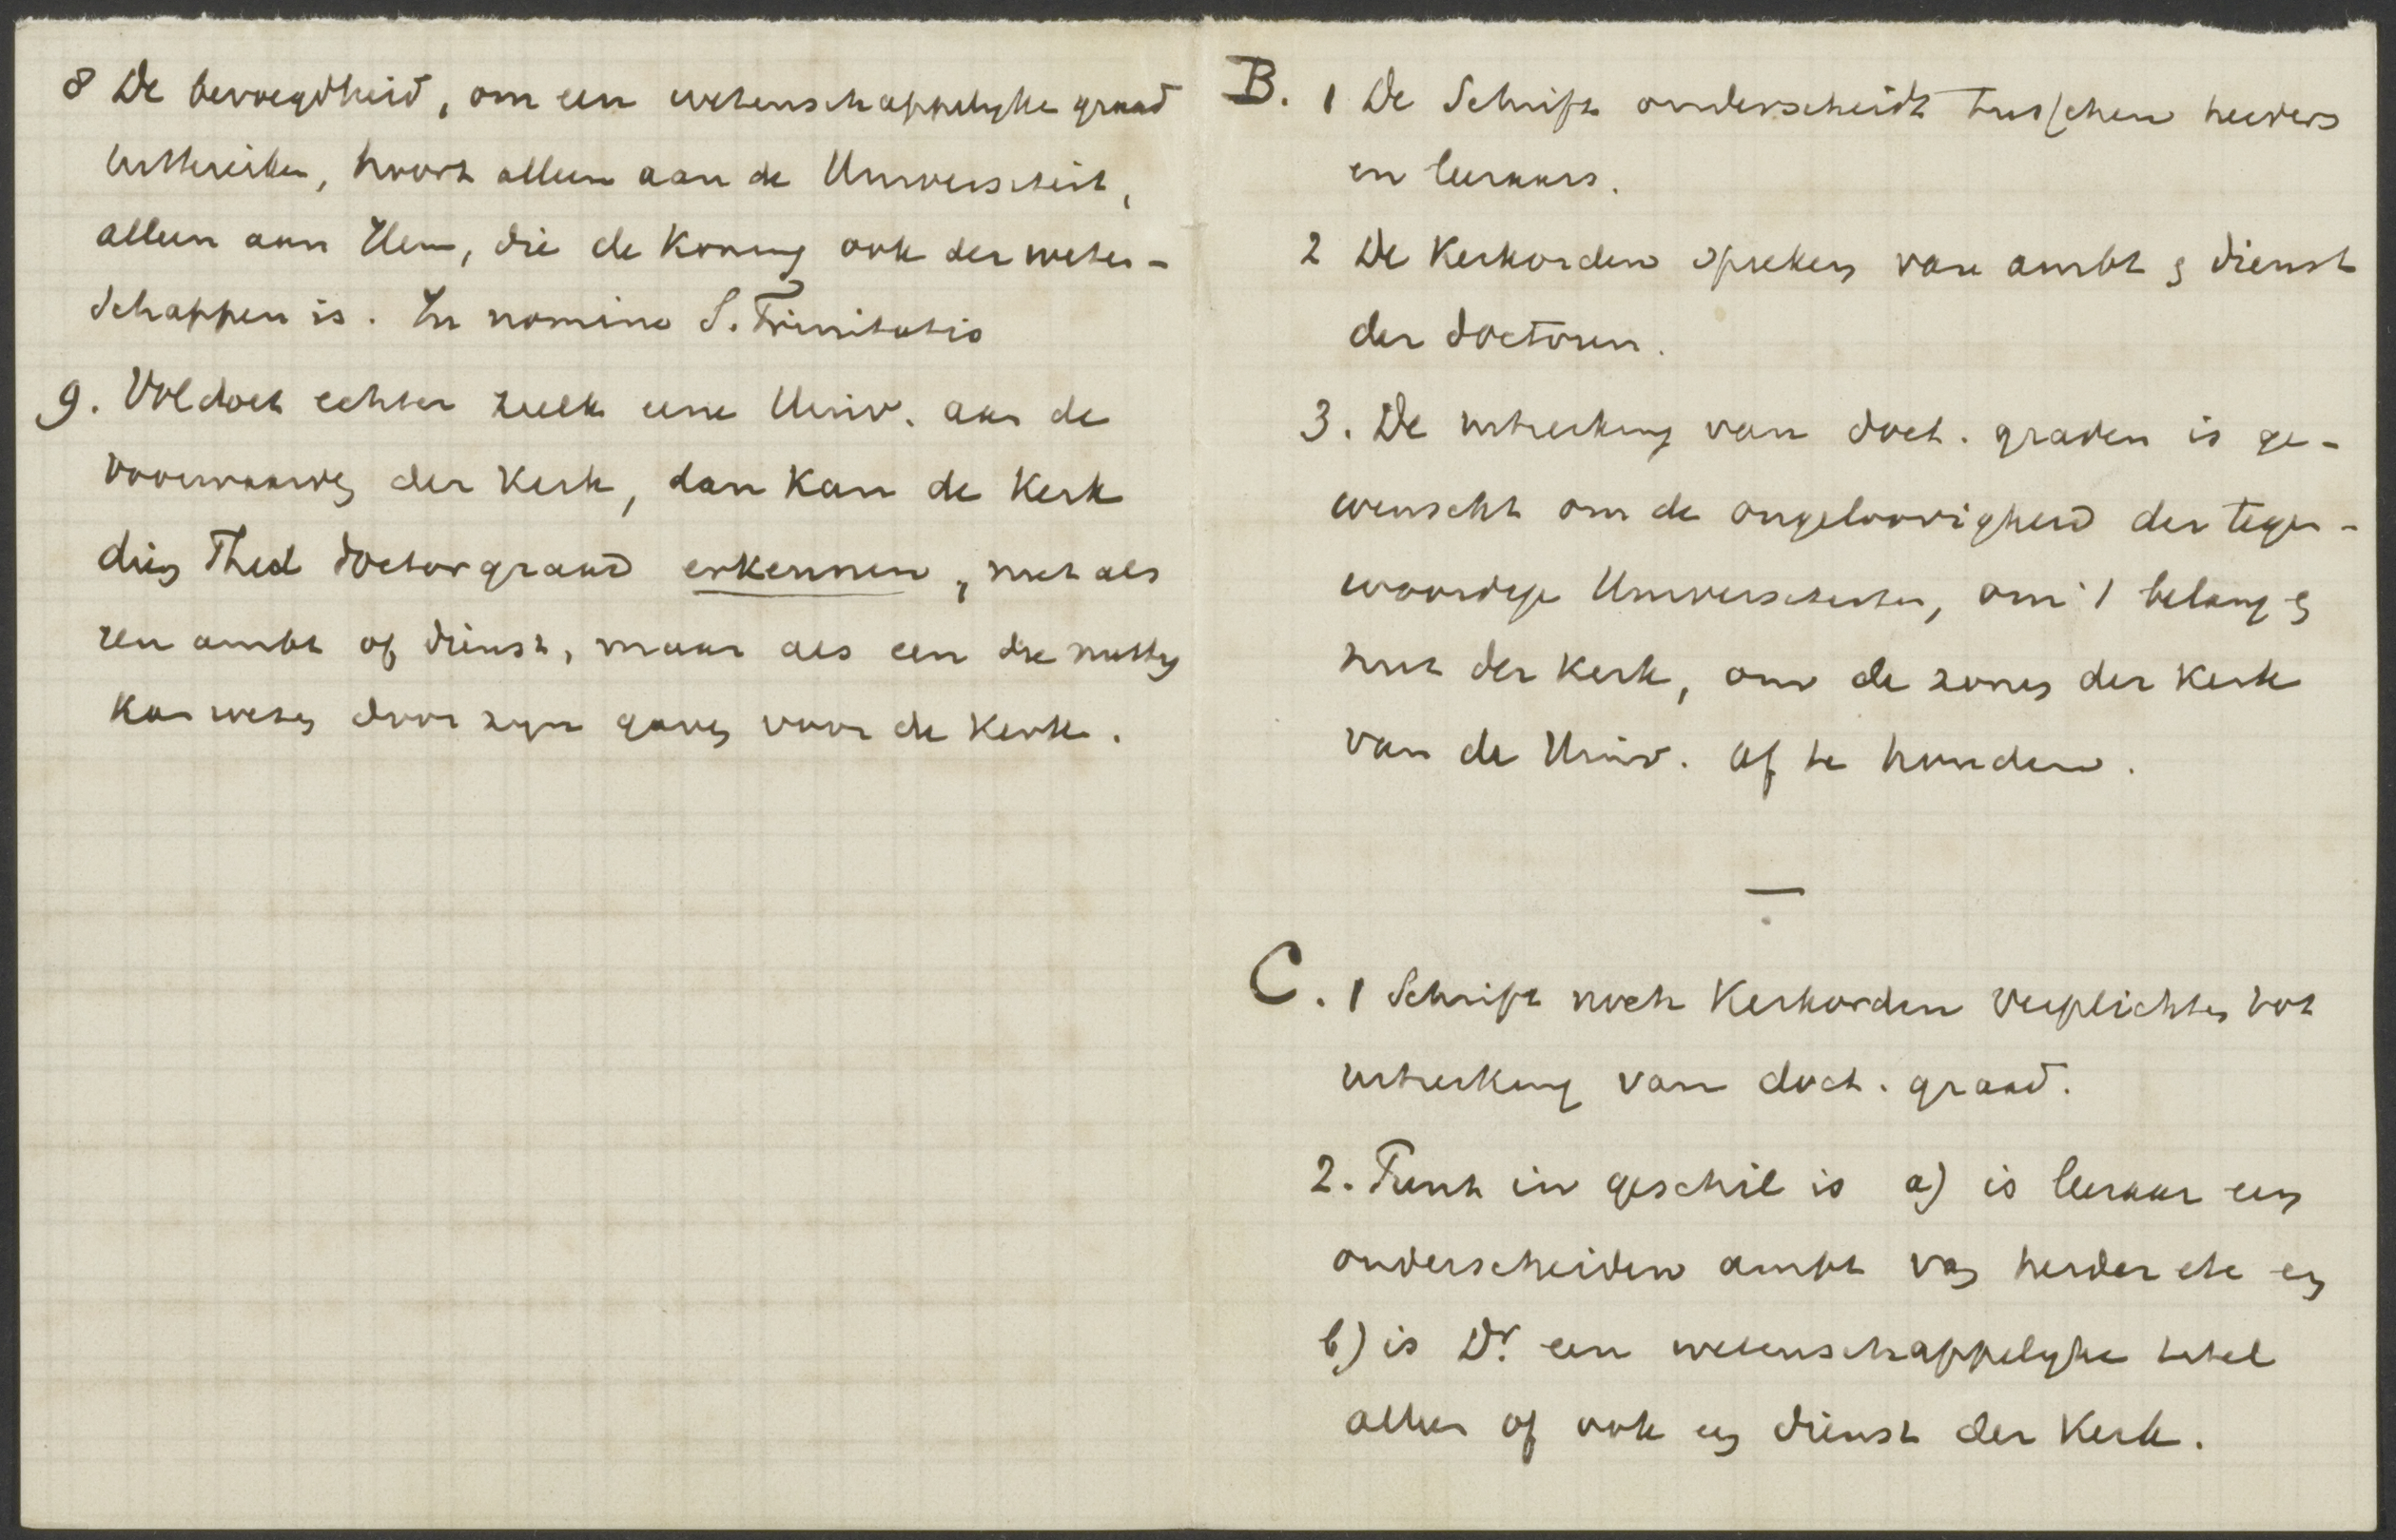 8 De bevoegdheid, om een wetenschappelijke graad
uittereiken, hoort alleen aan de Universiteit,
alleen aan Hem, die de Koning ook der weten-
schappen is. In nomine S. Trinitatis
9. Voldoet echter zulk eene Univ. aan de
voorwaarden der Kerk, dan kan de Kerk
dien Theol doctorgraad erkennen, niet als
een ambt of dienst, maar als een die nuttig
kan wezen door zijn gaven voor de Kerk.
B. 1 De Schrift onderscheidt tusschen herders
en leeraars.
2 De Kerkorden spreken van ambt en dienst
der doctoren.
3. De uitreiking van doct. graden is ge-
wenscht om de ongeloovigheid der tegen-
woordige Universiteiten, om 't belang en
nut der Kerk, om de zonen der Kerk
van de Univ. af te houden.
C. 1 Schrift noch Kerkorden verplichten tot
uitreiking van doct. graad.
2. Punt in geschil is a) is leeraar een
onderscheiden ambt van herder etc en
b) is Dr. een wetenschappelijke titel
alleen of ook een dienst der Kerk.